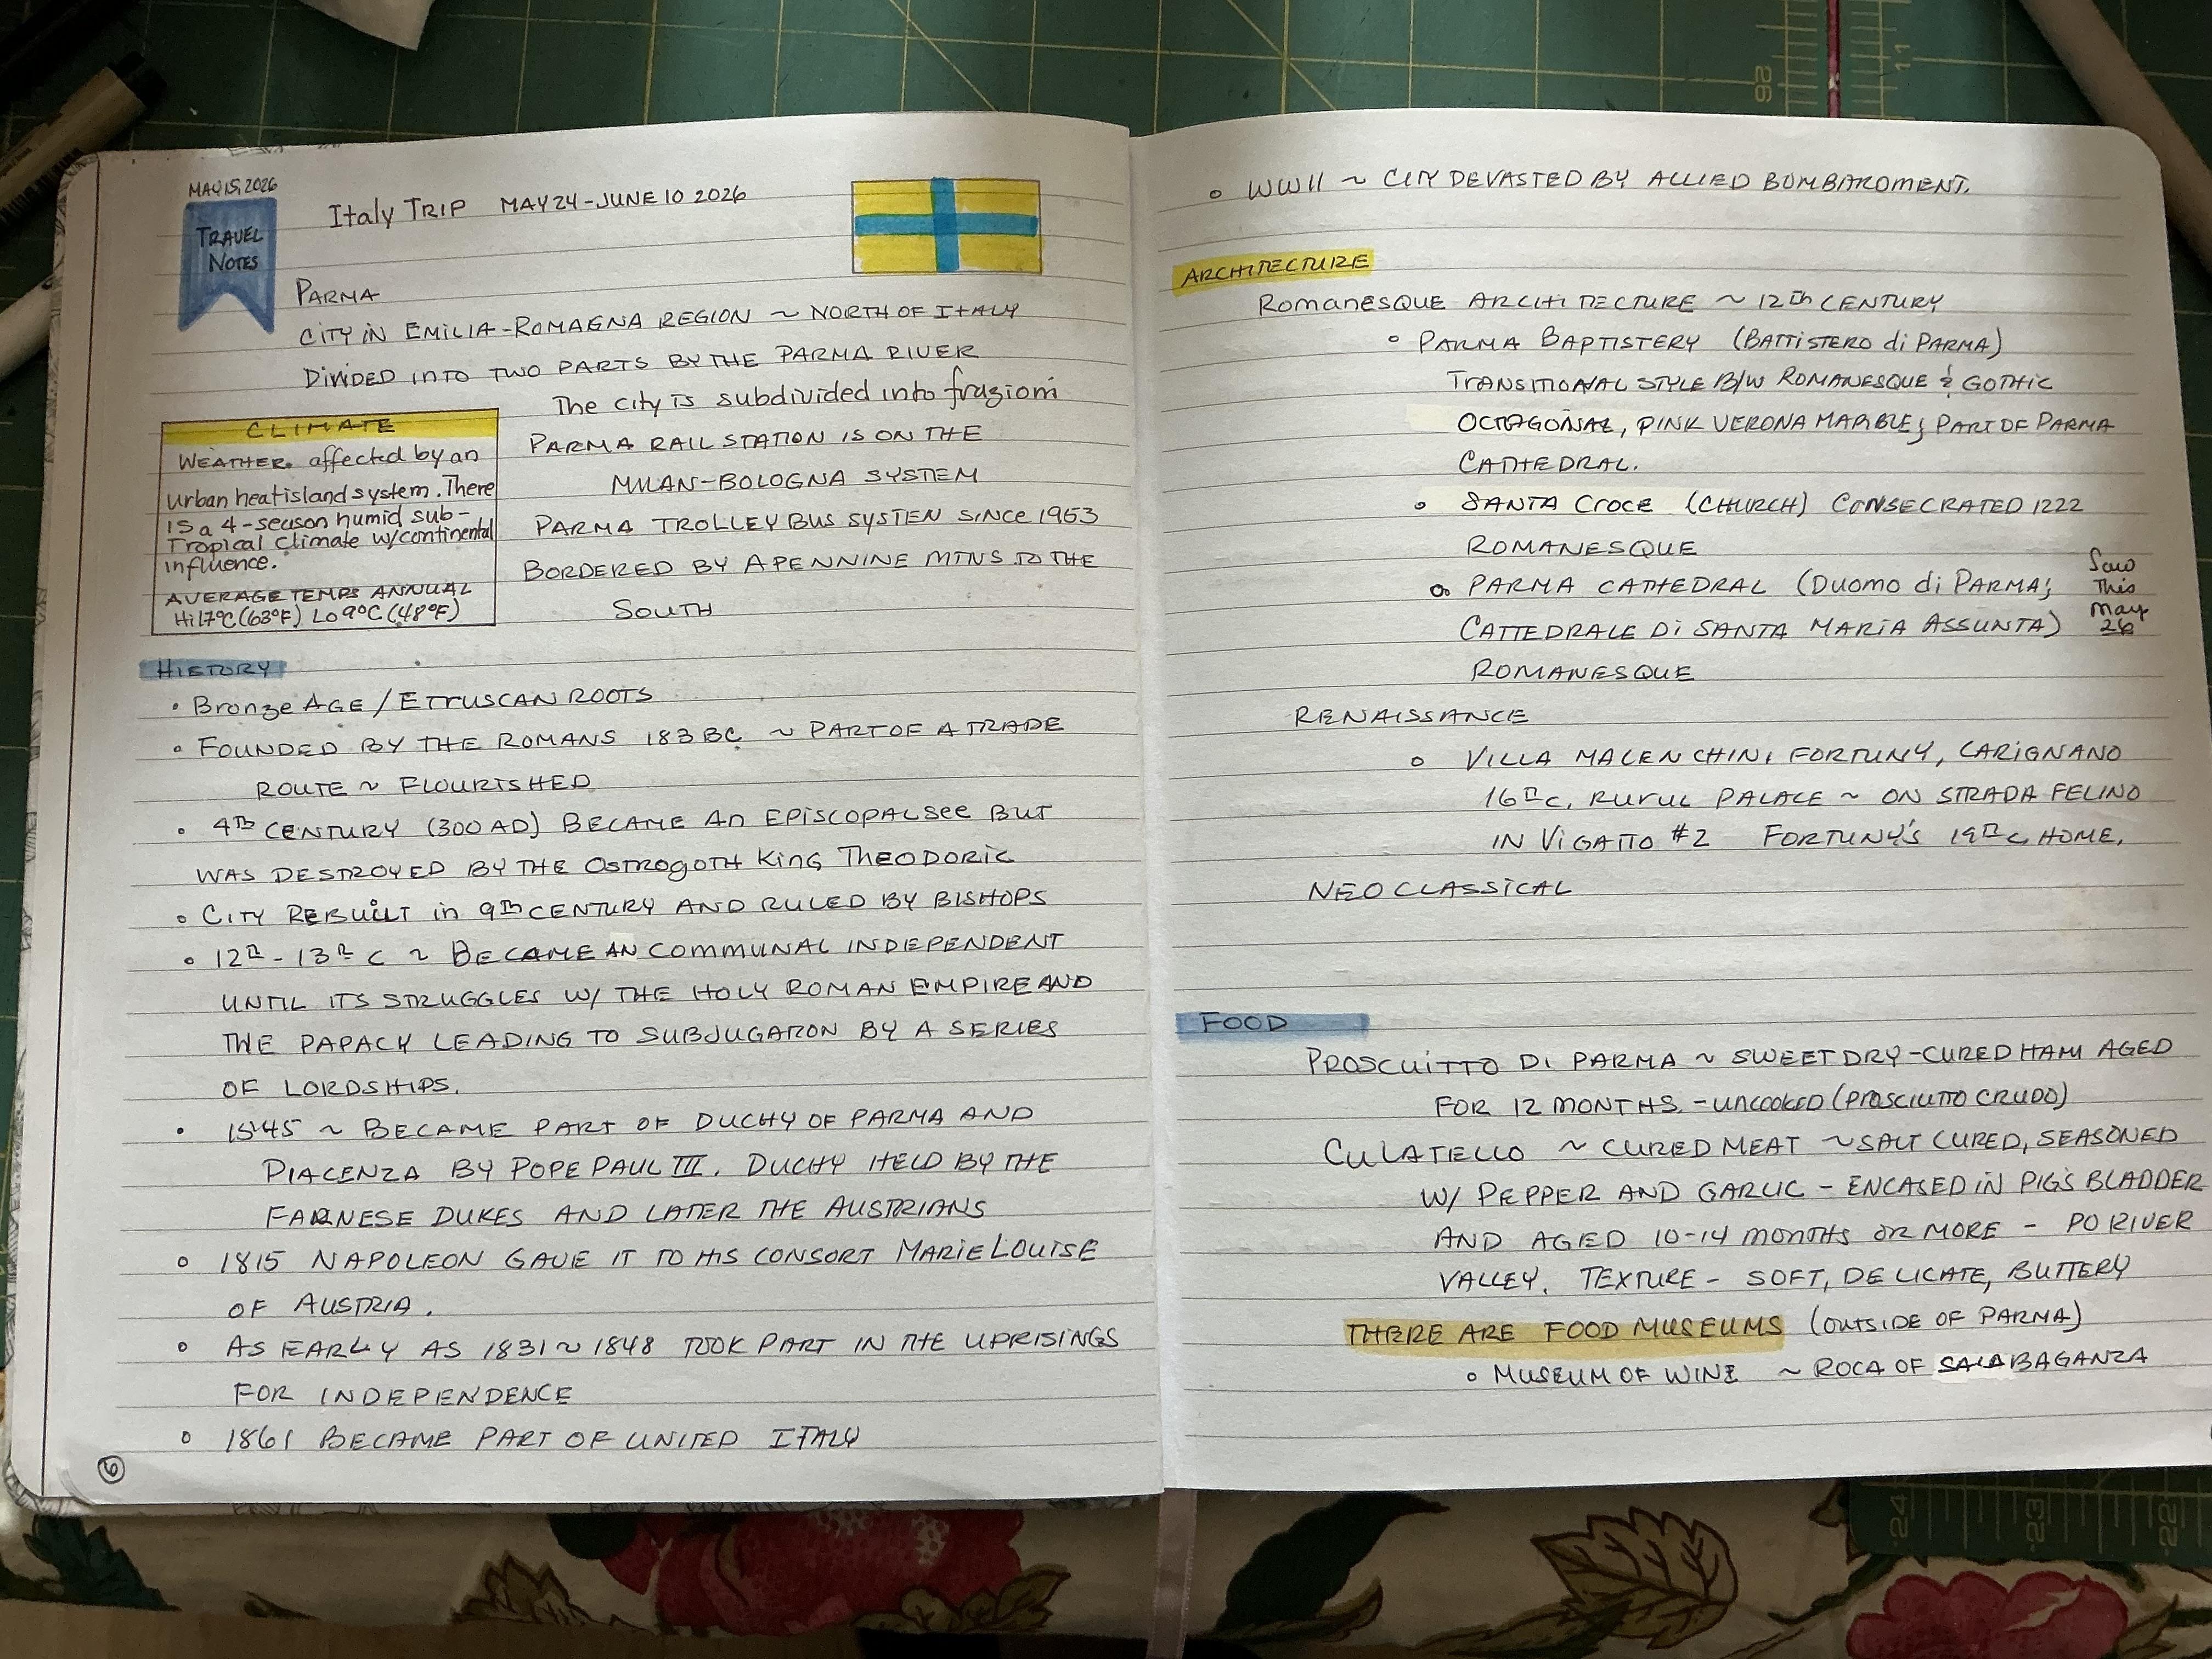 MAY 15, 2026
TRAVEL
NOTES
Italy TRIP MAY 24 - JUNE 10 2026
PARMA
CITY IN EMILIA-ROMAGNA REGION ~ NORTH OF ITALY
DIVIDED INTO TWO PARTS BY THE PARMA RIVER
The city is subdivided into frazioni
PARMA RAIL STATION IS ON THE
MILAN-BOLOGNA SYSTEM
PARMA TROLLEY BUS SYSTEN SINCE 1953
BORDERED BY APENNINE MTNS TO THE
SOUTH
CLIMATE
WEATHER. affected by an
urban heat island system. There
is a 4-season humid sub-
Tropical climate w/continental
influence.
AVERAGE TEMPS ANNUAL
Hi 17°C (63°F) Lo 9°C (48°F)
HISTORY
• Bronze AGE / ETRUSCAN ROOTS
• FOUNDED BY THE ROMANS 183 BC ~ PART OF A TRADE
ROUTE ~ FLOURISHED
• 4TH CENTURY (300 AD) BECAME AN EPISCOPAL See BUT
WAS DESTROYED BY THE OSTROGOTH KING THEODORIC
• CITY REBUILT in 9Th CENTURY AND RULED BY BISHOPS
• 12Th - 13Th C ~ BECAME AN COMMUNAL INDEPENDENT
UNTIL ITS STRUGGLES W/ THE HOLY ROMAN EMPIRE AND
THE PAPACY LEADING TO SUBJUGARON BY A SERIES
OF LORDSHIPS.
• 1545 ~ BECAME PART OF DUCHY OF PARMA AND
PIACENZA BY POPE PAUL III. DUCHY HELD BY THE
FARNESE DUKES AND LATER THE AUSTRIANS
• 1815 NAPOLEON GAVE IT TO HIS CONSORT MARIE LOUISE
OF AUSTRIA.
• AS EARLY AS 1831 ~ 1848 TOOK PART IN THE UPRISINGS
FOR INDEPENDENCE
• 1861 BECAME PART OF UNITED ITALY
6
• WWII ~ CITY DEVASTED BY ALLIED BOMBARDMENT.
ARCHITECTURE
Romanesque ARCHITECTURE ~ 12Th CENTURY
• PARMA BAPTISTERY (BATTISTERO di PARMA)
TRANSITIONAL STYLE B/W ROMANESQUE & GOTHIC
OCTAGONAL, PINK VERONA MARBLE; PART OF PARMA
CATHEDRAL.
• SANTA CROCE (CHURCH) CONSECRATED 1222
ROMANESQUE
• PARMA CATHEDRAL (Duomo di PARMA;
CATTEDRALE Di SANTA MARIA ASSUNTA)
ROMANESQUE
Saw
This
May
26
RENAISSANCE
• VILLA MALENCHINI FORTUNY, CARIGNANO
16Th C, RURUL PALACE ~ ON STRADA FELINO
IN VIGATTO #2 FORTUNY'S 19Th C, HOME.
NEOCLASSICAL
FOOD
PROSCUITTO DI PARMA ~ SWEET DRY-CURED HAM AGED
FOR 12 MONTHS. - UNCOOKED (PROSCIUTTO CRUDO)
CULATELLO ~ CURED MEAT ~ SALT CURED, SEASONED
W/ PEPPER AND GARLIC - ENCASED IN PIG'S BLADDER
AND AGED 10-14 MONTHS OR MORE - PO RIVER
VALLEY. TEXTURE - SOFT, DELICATE, BUTTERY
THERE ARE FOOD MUSEUMS (OUTSIDE OF PARMA)
• MUSEUM OF WINE ~ ROCA OF SALABAGANZA
26
11
24
23
22